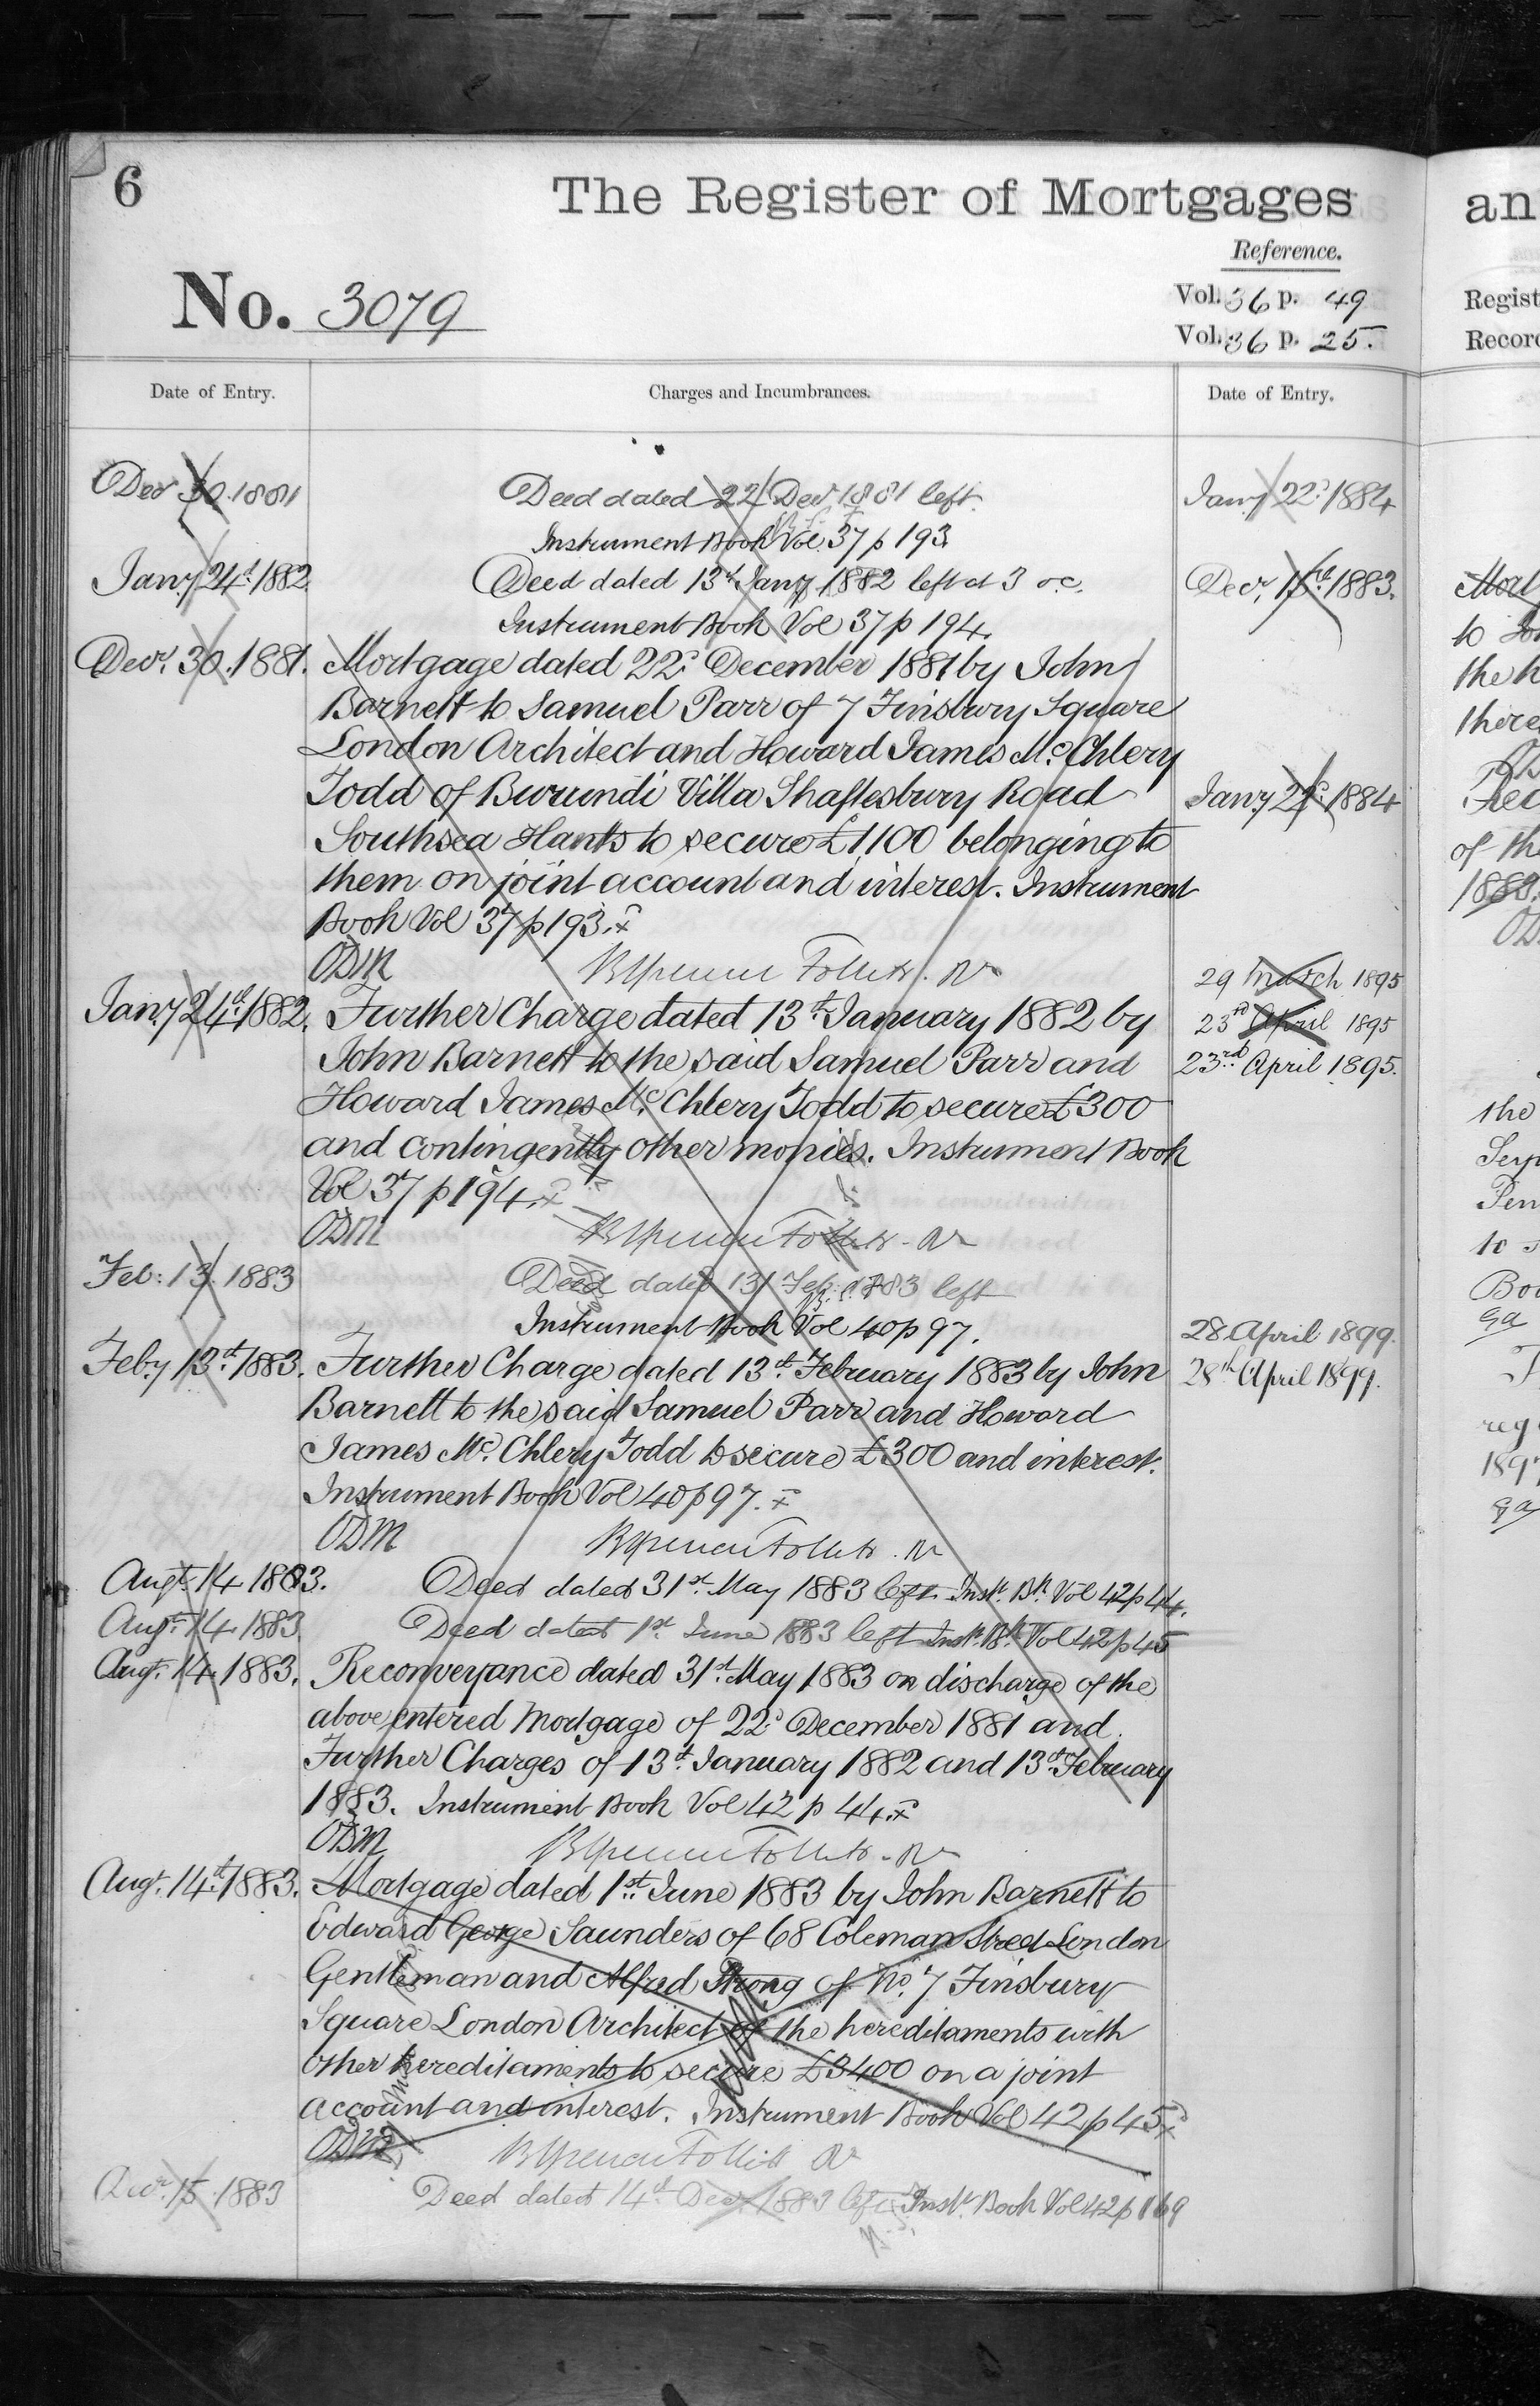 6
The Register of Mortgages
Reference.
No. 3079
Vol. 36 p. 49
Vol. 36 p. 25.
Date of Entry.
Charges and Incumbrances.
Date of Entry.
Decr 30. 1881
Deed dated 22d Decr 1881 left
Instrument Book Vol. 37 p 193.
Jany 24th 1882.
Deed dated 13th Jany 1882 left at 3 o.c.
Instrument Book Vol 37 p 194.
Decr. 30. 1881.
Mortgage dated 22d December 1881 by John
Barnett to Samuel Parr of 7 Finsbury Square
London Architect and Howard James Mc. Chlery
Todd of Burundi Villa Shaftesbury Road
Southsea Hants to secure £1100 belonging to
them on joint account and interest. Instrument
Book Vol 37 p 193.
ODM
Jany 24th 1882.
Further Charge dated 13th January 1882 by
John Barnett to the said Samuel Parr and
Howard James Mc. Chlery Todd to secure £300
and contingently other monies. Instrument Book
Vol 37 p 194.
ODM
Feb: 13. 1883
Deed dated 13 Feb. 1883 left
Instrument Book Vol 40 p 97.
Feby 13th 1883.
Further Charge dated 13th February 1883 by John
Barnett to the said Samuel Parr and Howard
James Mc. Chlery Todd to secure £300 and interest.
Instrument Book Vol 40 p 97.
ODM
Augt. 14 1883.
Deed dated 31st May 1883 left Inst. Bk. Vol 42 p 44.
Augt. 14. 1883.
Deed dated 1st June 1883 left Inst. Bk. Vol 42 p 45
Augt. 14. 1883.
Reconveyance dated 31st May 1883 on discharge of the
above entered Mortgage of 22d December 1881 and
Further Charges of 13th January 1882 and 13th February
1883. Instrument Book Vol 42 p 44.
ODM
Augt. 14th 1883.
Mortgage dated 1st June 1883 by John Barnett to
Edward George Saunders of 68 Coleman Street London
Gentleman and Alfred Strong of No. 7 Finsbury
Square London Architect of the hereditaments with
other hereditaments to secure £3400 on a joint
account and interest. Instrument Book Vol 42 p 45
ODM
Decr. 15. 1883
Deed dated 14th Decr. 1883 left Inst. Book Vol 42 p 169
Jany 22d 1884
Decr. 15th 1883.
Jany 22d 1884
29 March 1895
23rd April 1895
23rd April 1895.
28 April 1899.
28th April 1899.
an
Regist
Recor
Mort
the h
there
of the
1883.
the
Pen
to
189